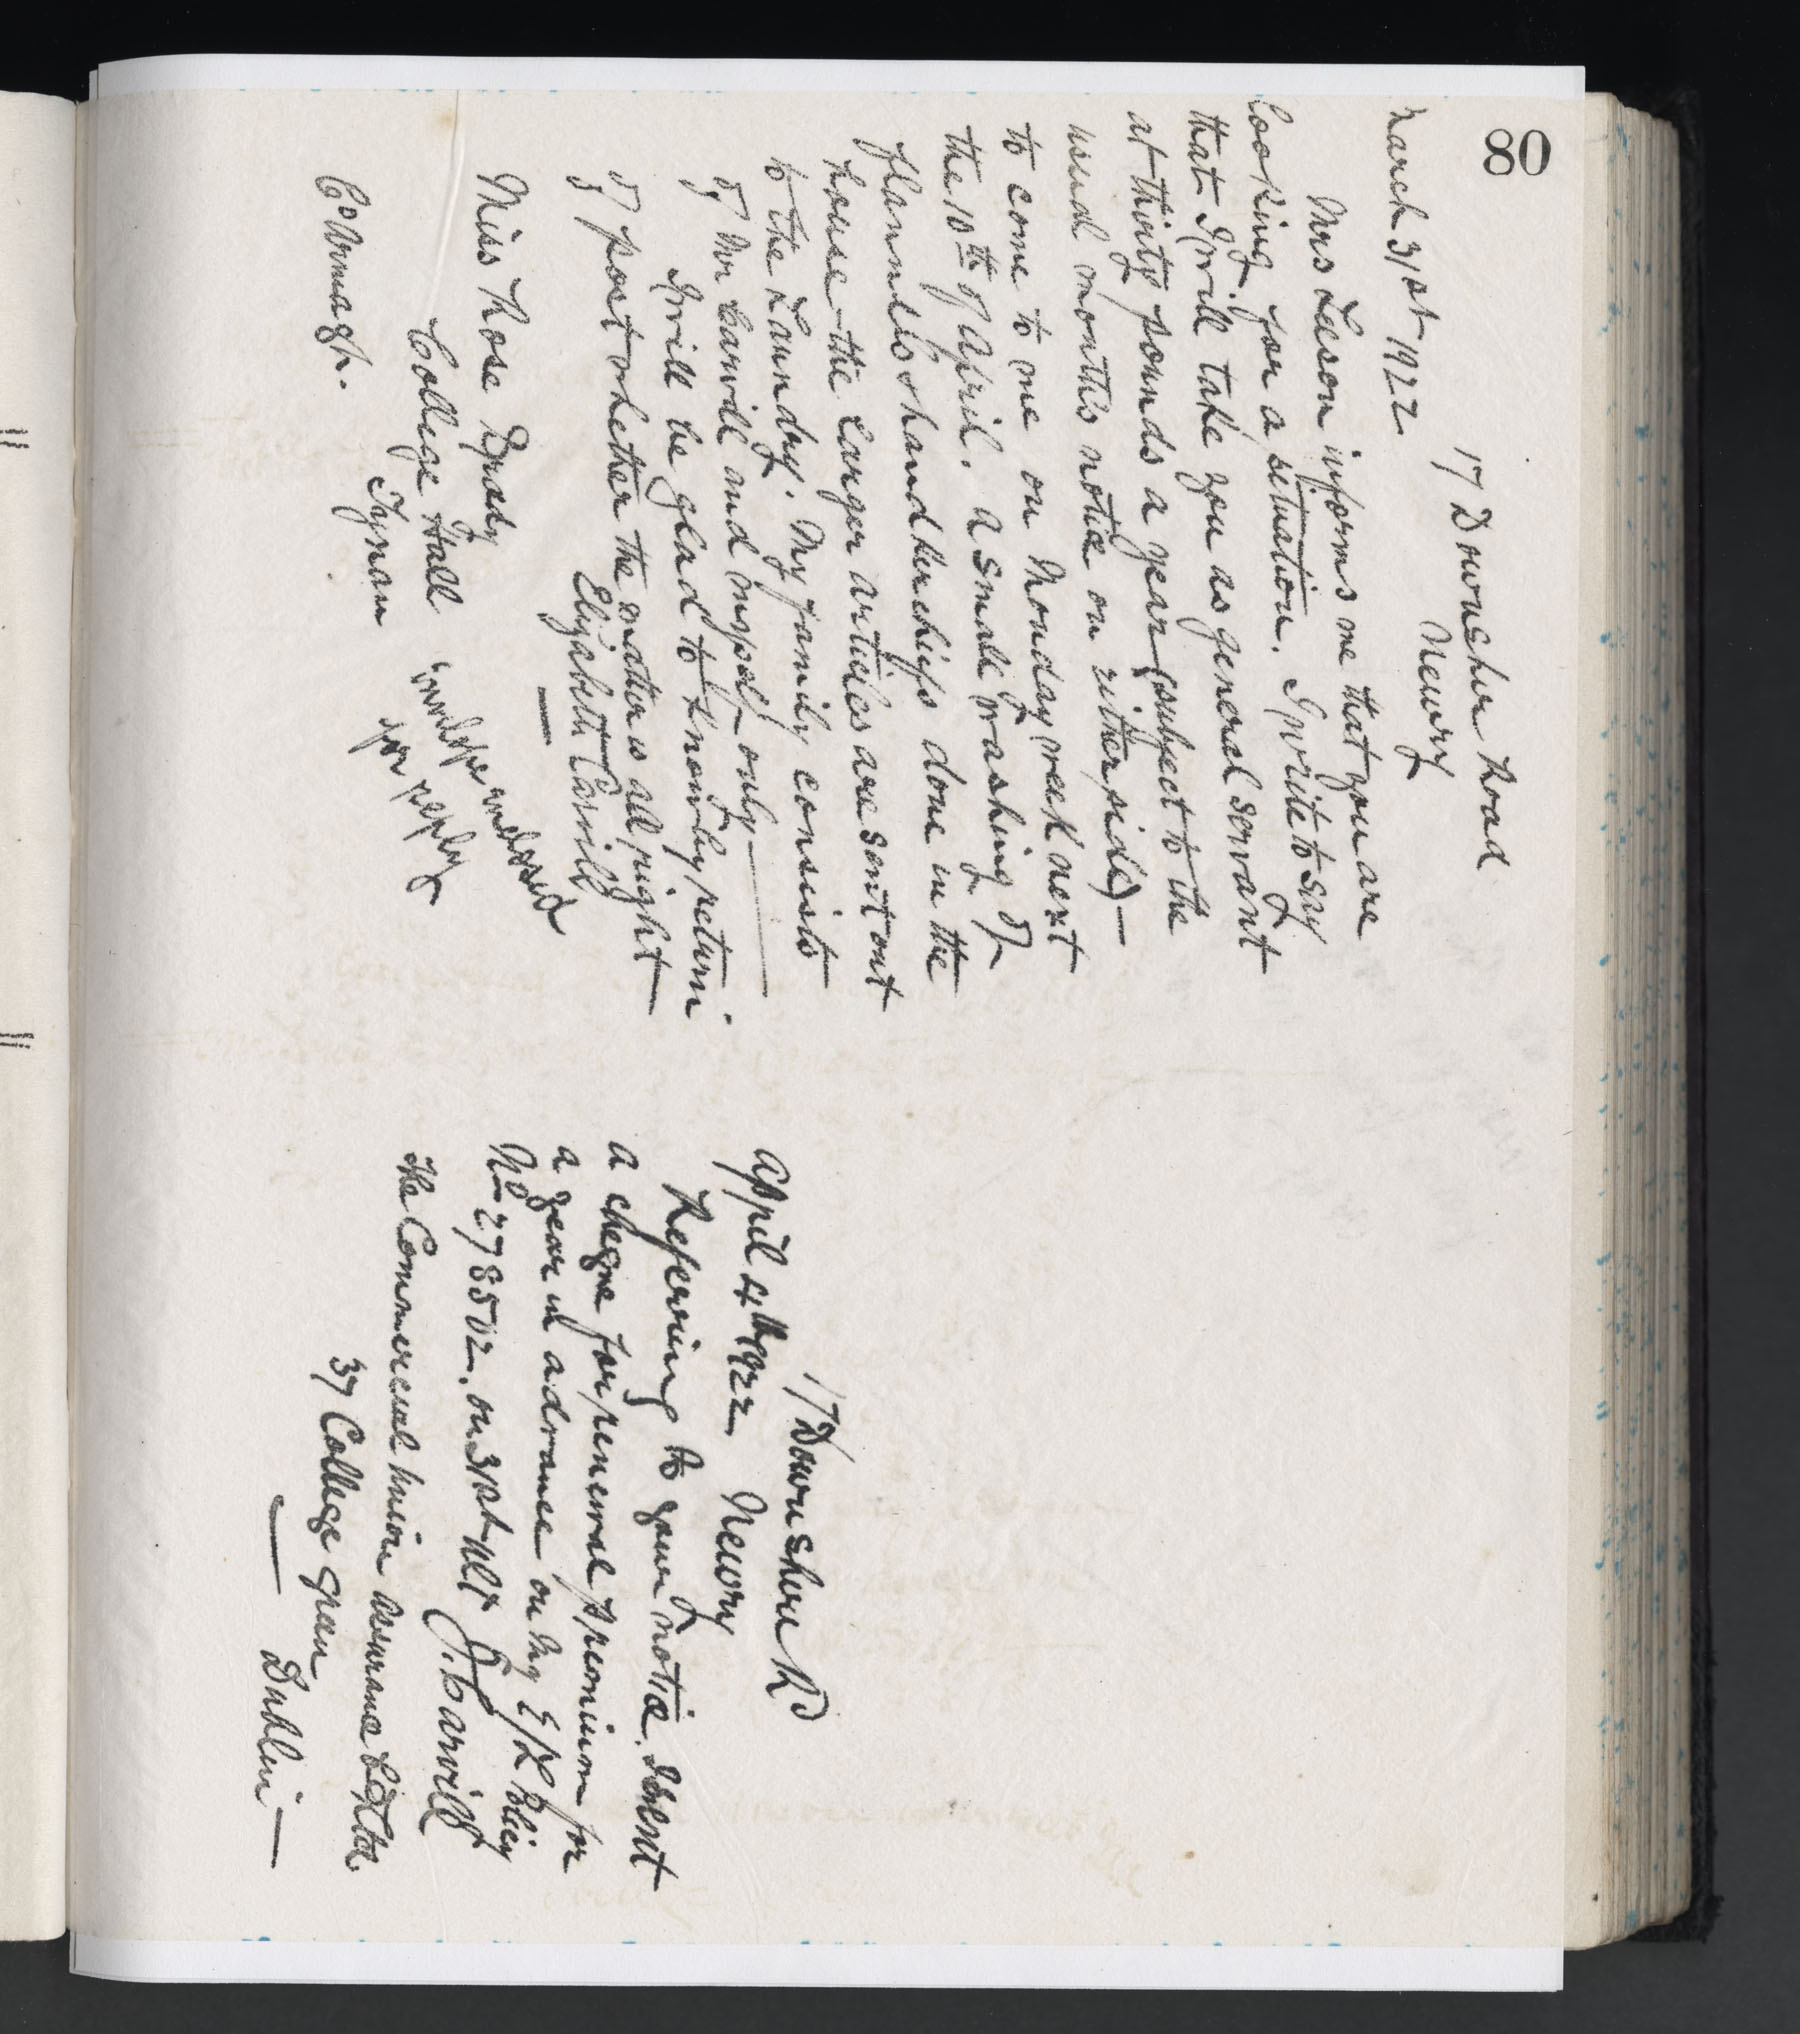 80
17 Downshire Road
Newry
March 31st 1922
Mrs Leeson informs me that you are
looking for a situation. I write to say
that I will take you as general servant
at thirty pounds a year (subject to the
usual months notice on either side) —
to come to me on Monday week next
the 10th of April. A small washing of
flannels & handkerchiefs done in the
house – the larger articles are sent out
to the Laundry. My family consists
of Mr Carvill and myself only —
I will be glad to know by return
of post whether the matter is all right —
Elizabeth Carvill
Miss Rose Grady
College Hall
Tynan
Co Armagh.
envelope enclosed
for reply
17 Downshire Rd
April 4th 1922 Newry
Referring to your notice. I sent
a cheque for renewal premium for
a year in advance on my E/L Policy
No 278502. on 31st ult J. Carvill
The Commercial Union Assurance Co Ltd
37 College Green
Dublin —